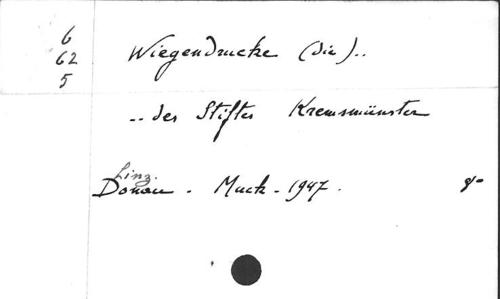 6
62
5
Wiegendrucke (die)..
.. des Stiftes Kremsmünster
Linz.
Donau. Muck. 1947.
8°